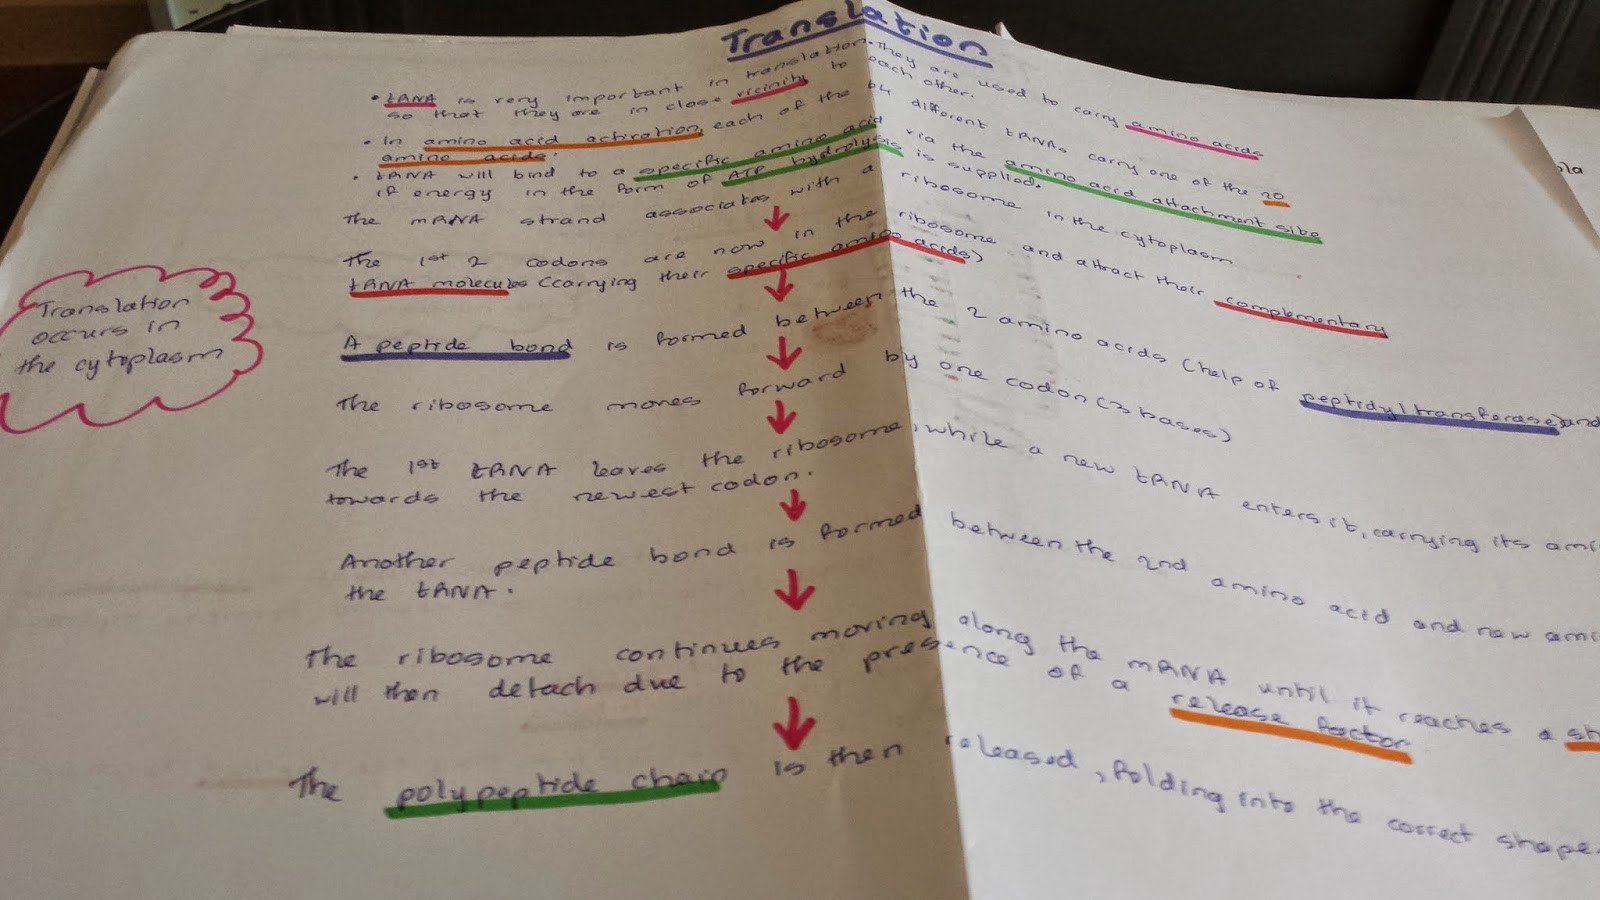 Translation
• tRNA is very important in translation. They are used to carry amino acids
so that they are in close vicinity to each other.
• In amino acid activation, each of the 64 different tRNAs carry one of the 20
amino acids.
• tRNA will bind to a specific amino acid via the amino acid attachment site
if energy in the form of ATP hydrolysis is supplied.
The mRNA strand associates with a ribosome in the cytoplasm
The 1st 2 codons are now in the ribosome and attract their complementary
tRNA molecules (carrying their specific amino acids)
A peptide bond is formed between the 2 amino acids (help of peptidyl transferase) and
The ribosome moves forward by one codon (3 bases)
The 1st tRNA leaves the ribosome, while a new tRNA enters it, carrying its ami
towards the newest codon.
Another peptide bond is formed between the 2nd amino acid and new ami
the tRNA.
The ribosome continues moving along the mRNA until it reaches a st
will then detach due to the presence of a release factor
The polypeptide chain is then released, folding into the correct shape.
Translation
occurs in
the cytoplasm